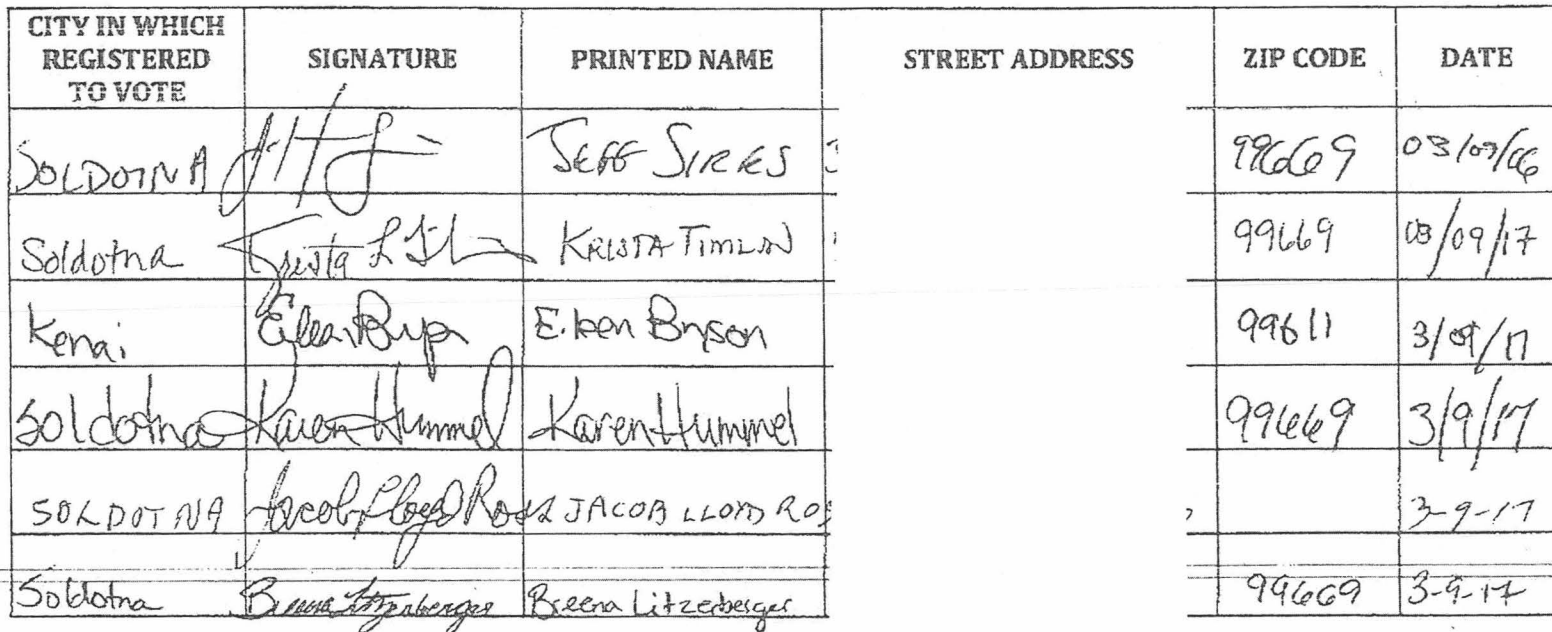 CITY IN WHICH REGISTERED TO VOTE SIGNATURE PRINTED NAME STREET ADDRESS ZIP CODE DATE
SOLDOTNA JEFF SIRES 99669 03/09/
Soldotna Krista L KRISTA TIMLIN 99669 03/09/17
Kenai Eileen Bryson Eileen Bryson 99611 3/09/17
Soldotna Karen Hummel Karen Hummel 99669 3/9/17
SOLDOTNA Jacob Lloyd Ross JACOB LLOYD ROS 3-9-17
Soldotna Breena Litzenberger Breena Litzerberger 99669 3-9-17